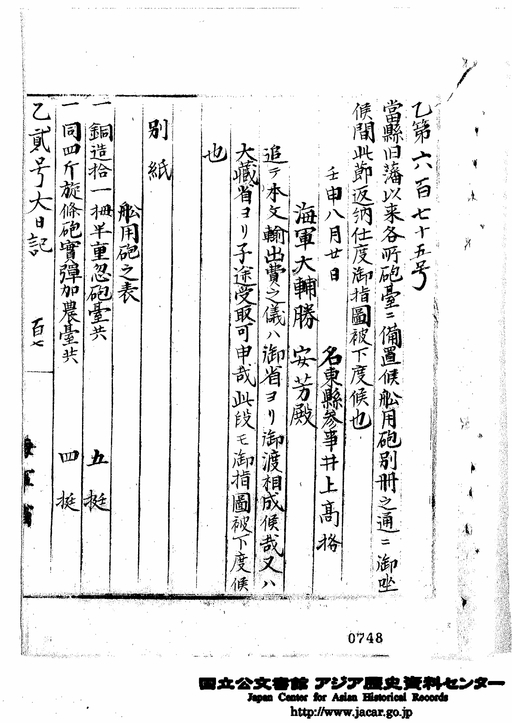 乙第六百七十五号
當縣旧藩以来各所砲臺ニ備置候舩用砲別冊之通ニ御坐
候間此節返納仕度御指圖被下度候也
壬申八月廿日
名東縣参事井上高格
海軍大輔勝安芳殿
追テ本文輸出費之儀ハ御省ヨリ御渡相成候哉又ハ
大藏省ヨリ子途受取可申哉此段モ御指圖被下度候
也
別紙
舩用砲之表
一銅造拾一拇半重忽砲臺共 五挺
一同四斤旋條砲實彈加農臺共 四挺
乙貳号大日記 百七
海軍省
0748
国立公文書館 アジア歴史資料センター
Japan Center for Asian Historical Records
http://www.jacar.go.jp